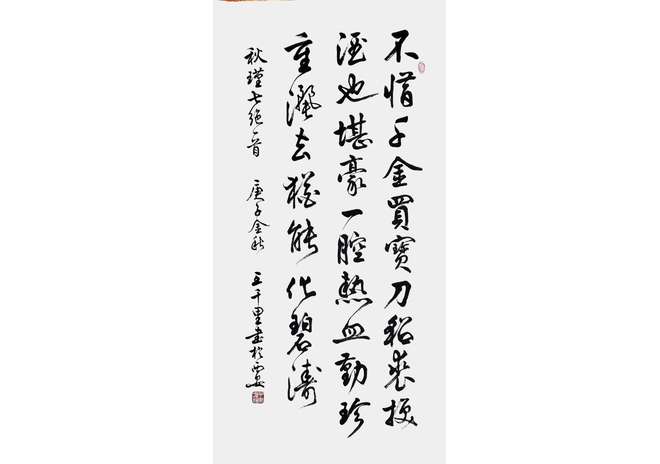 不惜千金買寶刀貂裘換
酒也堪豪一腔熱血勤珍
重灑去猶能化碧濤
秋瑾七絕一首 庚子金秋 王千里書於西安